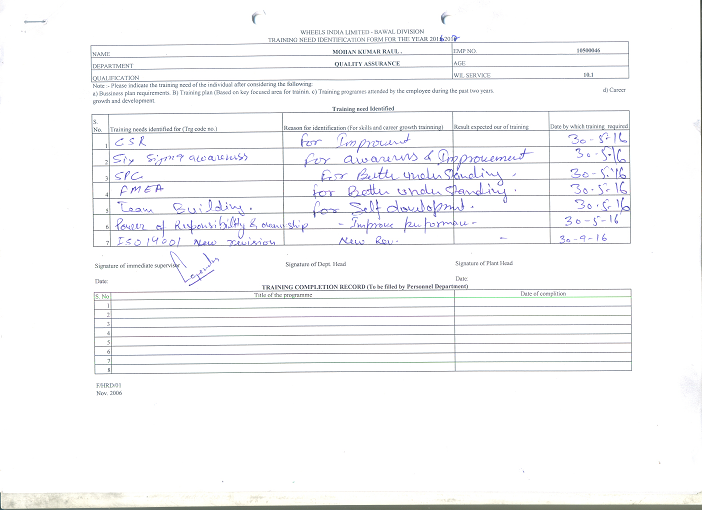 WHEELS INDIA LIMITED - BAWAL DIVISION
TRAINING NEED IDENTIFICATION FORM FOR THE YEAR
NAME MOHAN KUMAR RAUL . EMP NO. 10500046
DEPARTMENT QUALITY ASSURANCE AGE
QUALIFICATION WIL SERVICE 10.1
Note :- Please indicate the training need of the individual after considering the following:
a) Bussiness plan requirements. B) Training plan (Based on key focused area for trainin. c) Training programes attended by the employee during the past two years. d) Career
growth and development.
Training need Identified
S.
No. Training needs identified for (Trg code no.) Reason for identification (For skills and career growth trainning) Result expected out of training Date by which training required
1 CSR For 30-5-16
2 Six Sigma awareness For awareness & Improvement 30-5-16
3 SPC For Better understanding . 30-5-16
4 FMEA for Better understanding . 30-5-16
5 Team Building . for Self development . 30-5-16
6 Power of Responsibility & ownership - Improve performance - 30-5-16
7 ISO 14001 New revision New Rev. - 30-9-16
Signature of immediate supervisor Signature of Dept. Head Signature of Plant Head
Date: Date:
TRAINING COMPLETION RECORD (To be filled by Personnel Department)
S. No Title of the programme Date of complition
1
2
3
4
5
6
7
8
F/HRD/01
Nov. 2006